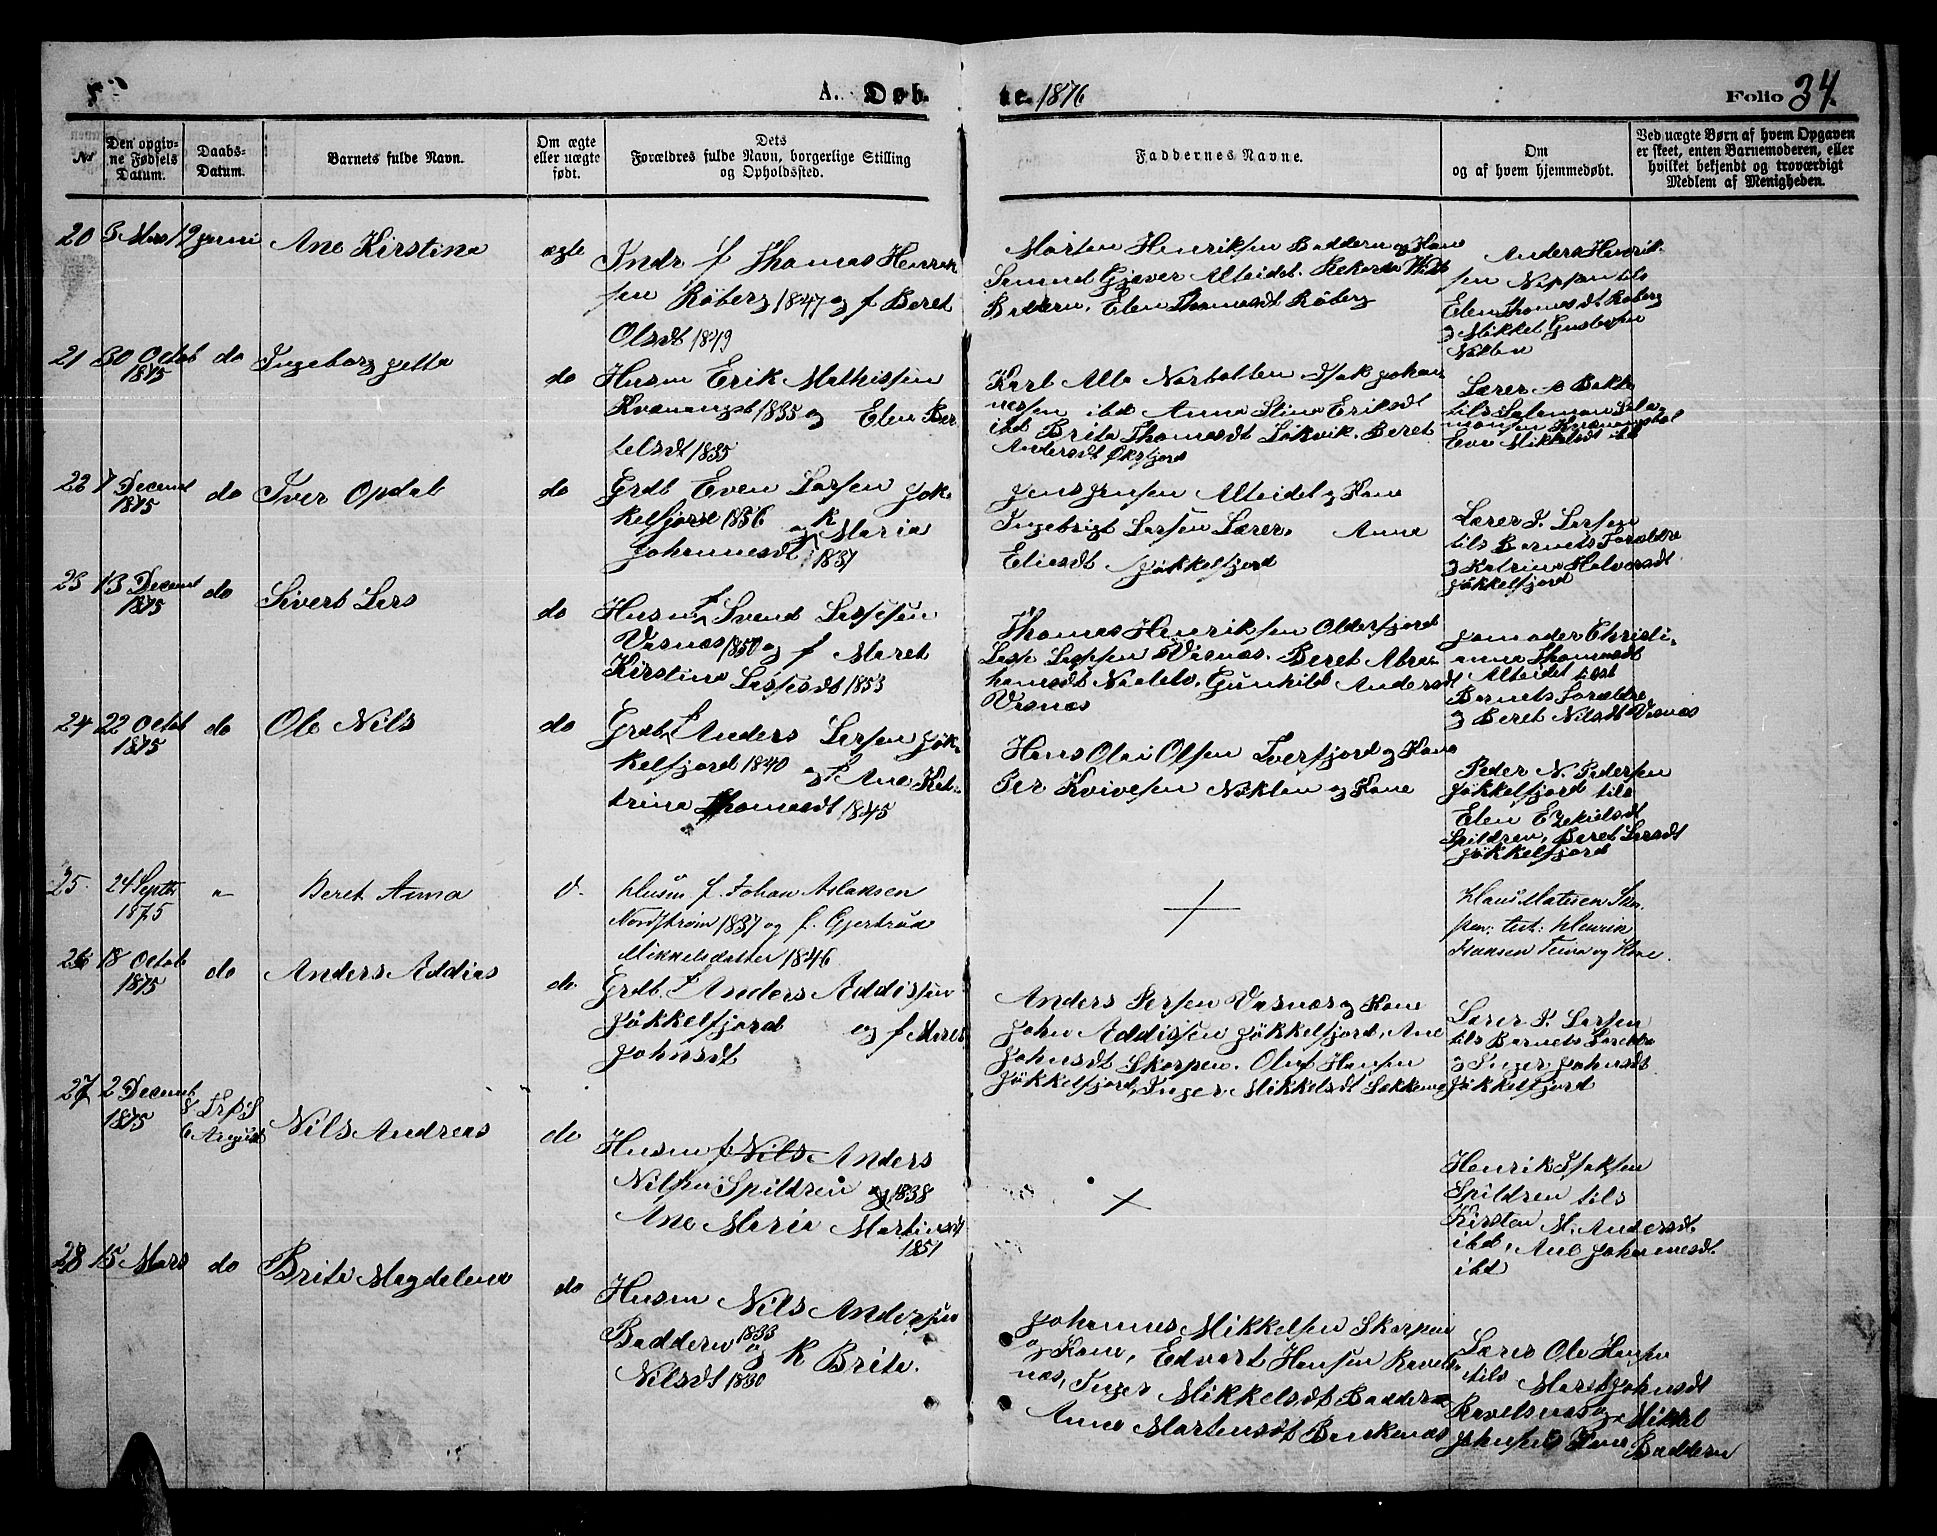 A. Døb-
te. 1876
Folio 34.
No
Den opgiv-
ne Fødsels
Datum.
Daabs-
Datum.
Barnets fulde Navn.
Om ægte
eller uægte
født.
Dets
Forældres fulde Navn, borgerlige Stilling
og Opholdssted.
Faddernes Navne.
Om
og af hvem hjemmedøbt.
Ved uægte Børn af hvem Opgaven
er skeet, enten Barnemoderen, eller
hvilket bekjendt og troværdigt
Medlem af Menigheden.
20 3 Mars 19 Juni Ane Kirstina ægte
Indr f Thomas Henrik
sen Røberg 1847 og f Beret
Olsdt 1849
Morten Henriksen Baddern og Kone
Baddern, Elen Thomasdt Røberg
Anders Henrik-
sen
tils
Elen Thomasdt Røberg
21 30 Octob do Ingeborg Jetta do
1875
Husm Erik Mathissen
Kvænangsb 1835 og Elen Ber
telsdt 1835
Karl Alb Norbotten Isak Johan
nessen ibd Anna Stina Eriksdt
ibd Brita Thomasdt Løkvik. Beret
Andersdt Øksfjord
Lærer Bakke
tils Salomon Salo-
monsen Kvænangsbot
22 7 Decemb do Iver Opdal do
1875
Grdb Even Larsen Jøk-
kelfjord 1836 og k Maria
Johannesdt 1837
Jens Jensen Alteidet og Kone
Ingebrigt Larsen Lærer. Anne
Eliesdt Jøkkelfjord
Lærer I. Larsen
tils Barnets Forældre
og Katrina Halvorsdt
Jøkkelfjord
23 13 Decemb do Sivert Lars do
1875
Husm f Svend
Vasnæs 1850 og f Maret
Kirstina 1853
Thomas Henriksen Olderfjord
Vasnæs. Beret Abra-
hamsdt Gunhild Andersdt
Vasnæs
Jormoder Christi-
anna Thomasdt
Alteidet tils
Barnets Forældre
og Beret Nilsdt Vasnæs
24 22 Octob do Ole Nils do
1875
Grdb f Anders Larsen Jøk-
kelfjord 1840 og f Ane Kat-
trina Thomasdt 1845
Hans Olai Olsen Tverfjord og Kone
Per Kvivesen Noklen og Kone
Peder N. Pedersen
Jøkkelfjord tils
Elen Ezekielsdt
Spildren, Beret Larsdt
Jøkkelfjord
25. 24 Septbr " Beret Anna d.
1875
Husm f. Johan Aslaksen
Nordstrøm 1837 og f. Gjertrud
Mikkelsdatter 1846
Klaus Matisen
Henrik
Hansen og Kone.
26 18 Octob do Anders Addias do.
1875
Grdb. f Anders Addissen
Jøkkelfjord og f Maret
Johnsdt
Anders Persen Vasnæs og Kone
John Addissen Jøkkelfjord, Ane
Johnsdt Skorpen. Oluf Hansen
Jøkkelfjord, Inger Mikkelsdt Sekkemo
Lærer I. Larsen
tils Barnets Forældre
og Inger Johnsdt
Jøkkelfjord
27 2 Decemb
1875
6 August Nils Andreas do
Husm f Anders
Nilsen Spildren 1838
og Ane Marie Martinsdt
1851
Henrik Isaksen
Spildren tils
Kirsten M. Andersdt
ibd, Ane Johannesdt
ibd
28 15 Mars do Brita Magdalena do
Husm Nils Andersen
Baddern 1833 og k Brite.
Nilsdt 1830
Johannes Mikkelsen Skorpen
og Kone, Edvart Hansen Ravels-
næs, Inger Mikkelsdt Baddern
Anne Martensdt
Lærer Ole
tils Maret Johnsdt
Ravelsnæs og Mikkel
Johnsen Kone Baddern